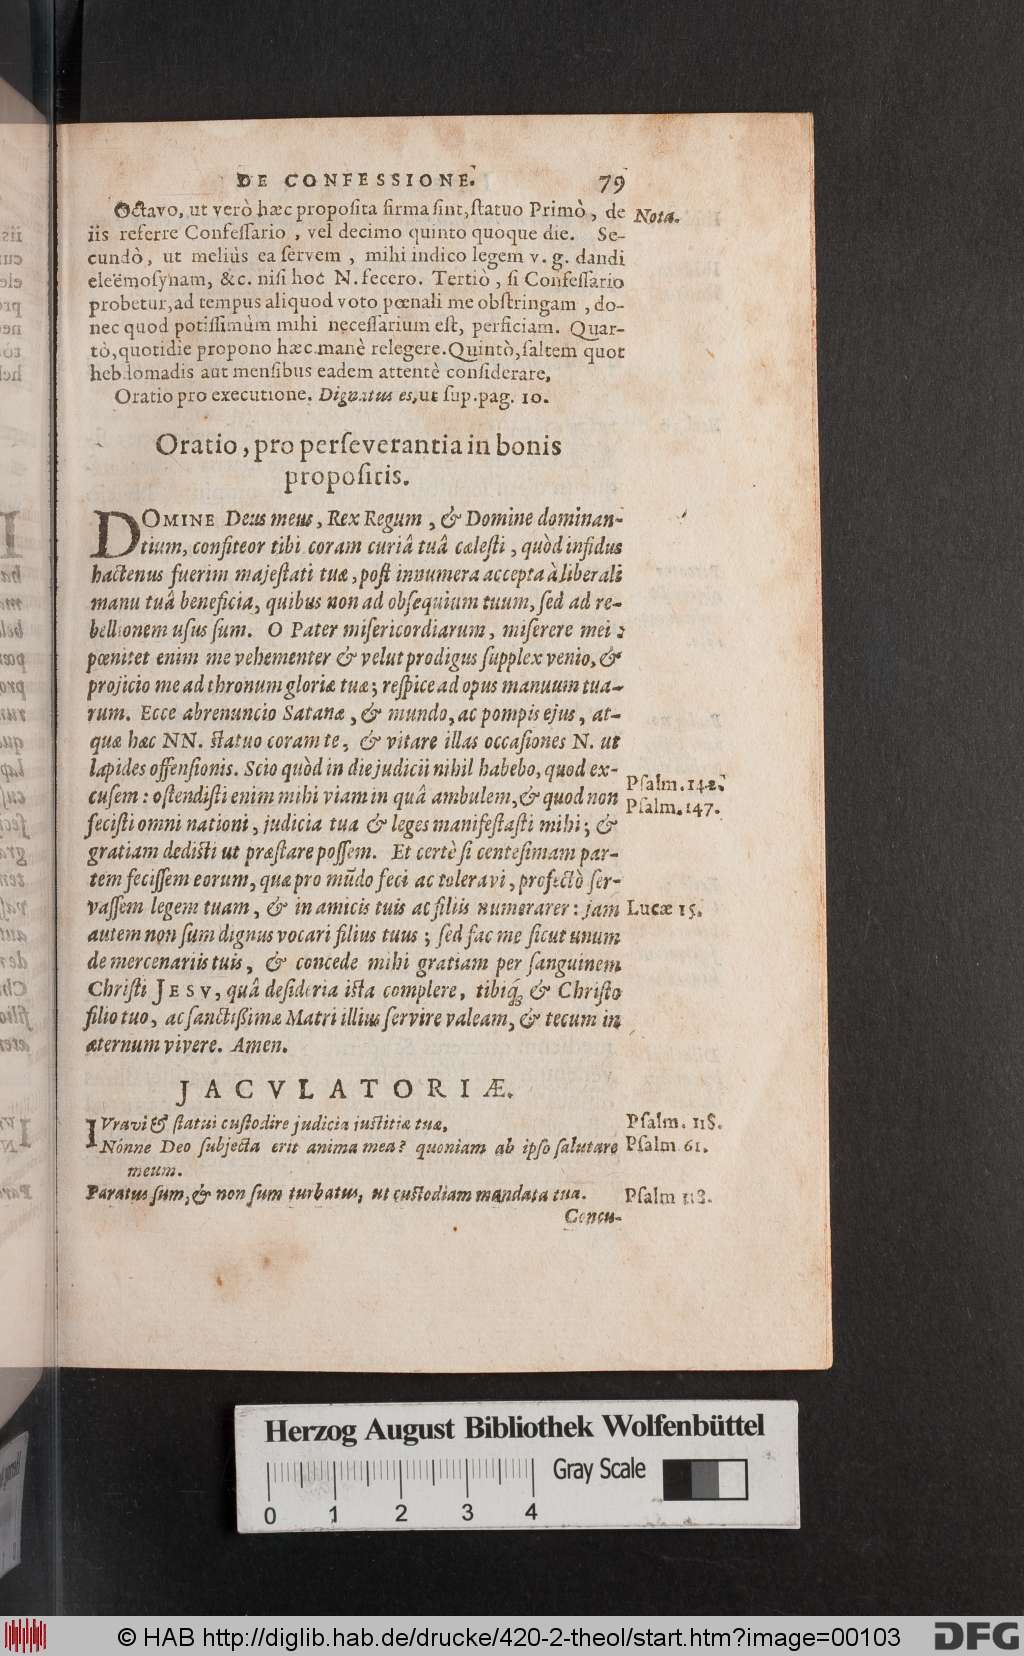 DE CONFESSIONE. 79
Octavo, ut verò hæc proposita firma sint, statuo Primò, de Nota.
iis referre Confessario, vel decimo quinto quoque die. Se-
cundò, ut meliùs ea servem, mihi indico legem v. g. dandi
eleëmosynam, &c. nisi hoc N. fecero. Tertiò, si Confessario
probetur, ad tempus aliquod voto pœnali me obstringam, do-
nec quod potissimùm mihi necessarium est, perficiam. Quar-
tò, quotidie propono hæc manè relegere. Quintò, saltem quot
hebdomadis aut mensibus eadem attentè considerare.
Oratio pro executione. Dignatus es, ut sup. pag. 10.
Oratio, pro perseverantia in bonis
propositis.
DOMINE Deus meus, Rex Regum, & Domine dominan-
tium, confiteor tibi coram curiâ tuâ cælesti, quòd infidus
hactenus fuerim majestati tuæ, post innumera accepta à liberali
manu tuâ beneficia, quibus non ad obsequium tuum, sed ad re-
bellionem usus sum. O Pater misericordiarum, miserere mei:
pœnitet enim me vehementer & velut prodigus supplex venio, &
projicio me ad thronum gloriæ tuæ; respice ad opus manuum tua-
rum. Ecce abrenuncio Satanæ, & mundo, ac pompis ejus, at-
quæ hæc NN. statuo coram te, & vitare illas occasiones N. ut
lapides offensionis. Scio quòd in die judicii nihil habebo, quod ex-
cusem: ostendisti enim mihi viam in quâ ambulem, & quod non Psalm. 142.
fecisti omni nationi, judicia tua & leges manifestasti mihi; & Psalm. 147.
gratiam dedisti ut præstare possem. Et certè si centesimam par-
tem fecissem eorum, quæ pro mũdo feci ac toleravi, profectò ser-
vassem legem tuam, & in amicis tuis ac filiis numerarer: jam Lucæ 15.
autem non sum dignus vocari filius tuus; sed fac me sicut unum
de mercenariis tuis, & concede mihi gratiam per sanguinem
Christi JESV, quâ desideria ista complere, tibiq́; & Christo
filio tuo, ac sanctissimæ Matri illius servire valeam, & tecum in
æternum vivere. Amen.
JACVLATORIÆ.
IUravi & statui custodire judicia iustitiæ tuæ. Psalm. 118.
Nónne Deo subjecta erit anima mea? quoniam ab ipso salutare Psalm 61.
meum.
Paratus sum, & non sum turbatus, ut custodiam mandata tua. Psalm 118.
Concu-
Herzog August Bibliothek Wolfenbüttel
Gray Scale
0 1 2 3 4
© HAB http://diglib.hab.de/drucke/420-2-theol/start.htm?image=00103
DFG